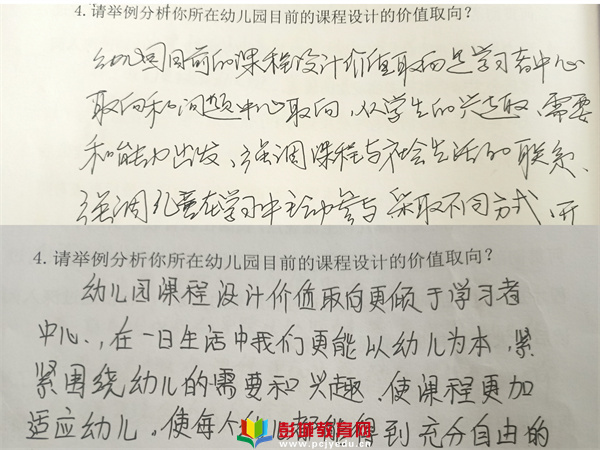 4. 请举例分析你所在幼儿园目前的课程设计的价值取向?
幼儿园目前的课程设计价值取向是学习者中心
取向和问题中心取向,从学生的兴趣、需要
和能力出发、强调课程与社会生活的联系、
强调儿童在学习中主动参与 采取不同方式、开
4. 请举例分析你所在幼儿园目前的课程设计的价值取向?
幼儿园课程设计价值取向更倾于学习者
中心,在一日生活中我们更能以幼儿为本,紧
紧围绕幼儿的需要和兴趣,使课程更加
适应幼儿。使每个 得到充分自由的
彭菲教育网
www.pcjyedu.cn